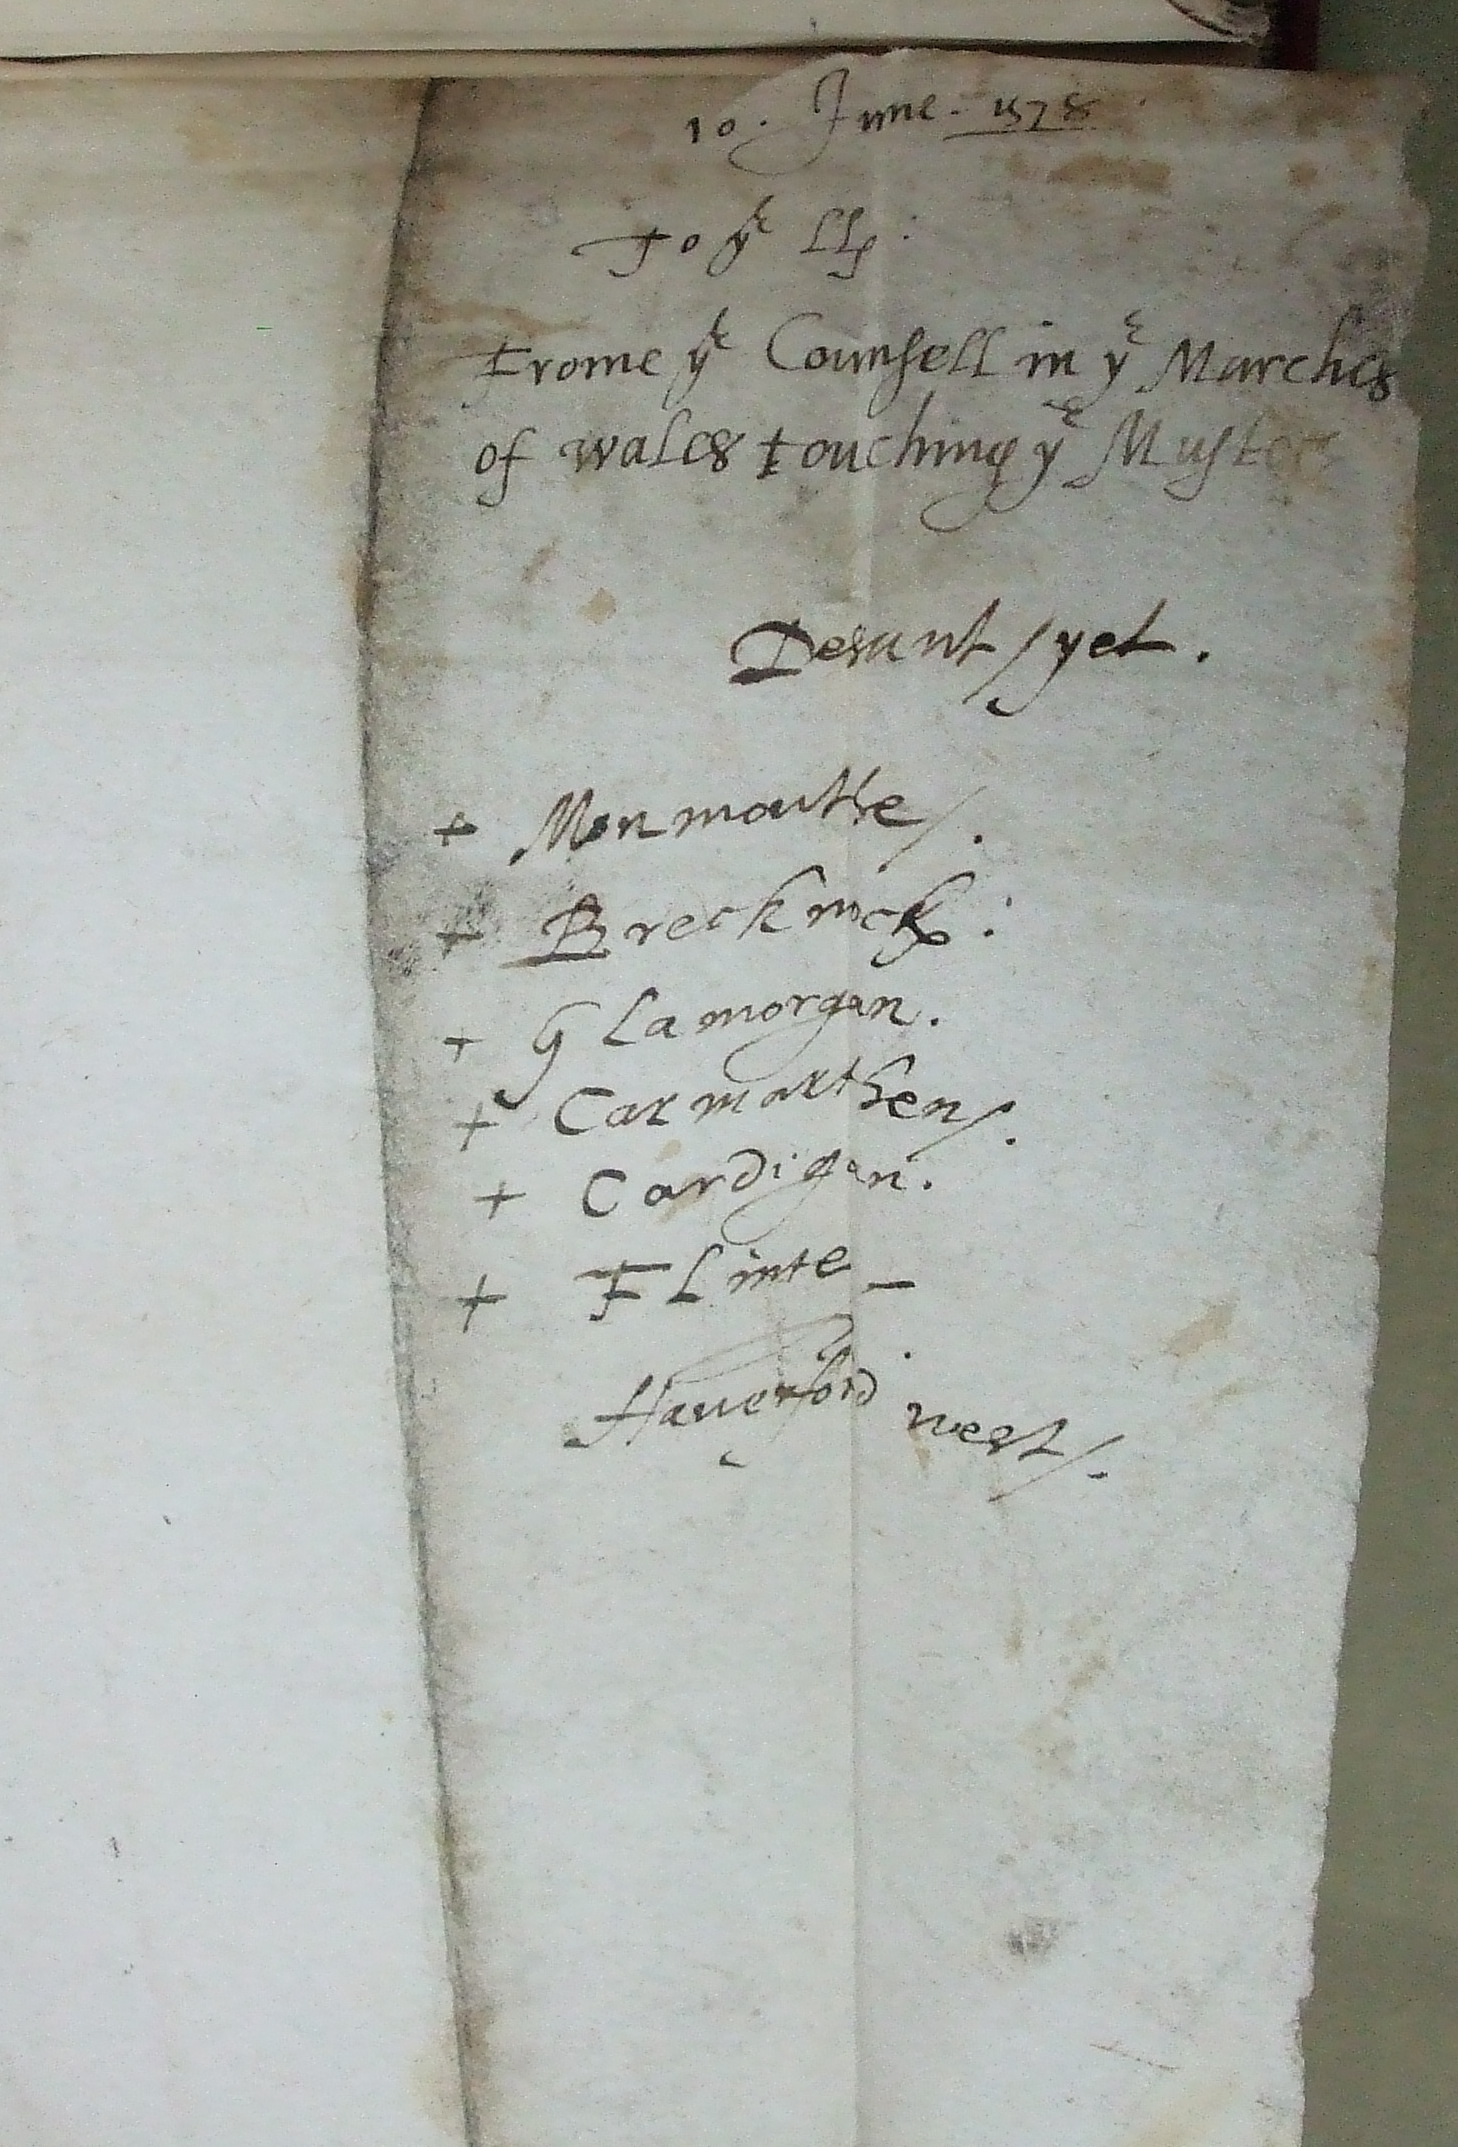 10. June. 1578
To yͤ LLp:
Frome yͤ Counsell in yͤ Marches
of wales touching yͤ Musters
Desunt / yet.
+ Monmouthe /.
+ Brecknock:
+ Glamorgan.
+ Carmarthen /.
+ Cardigan.
+ Flinte —
Hauerford west /.